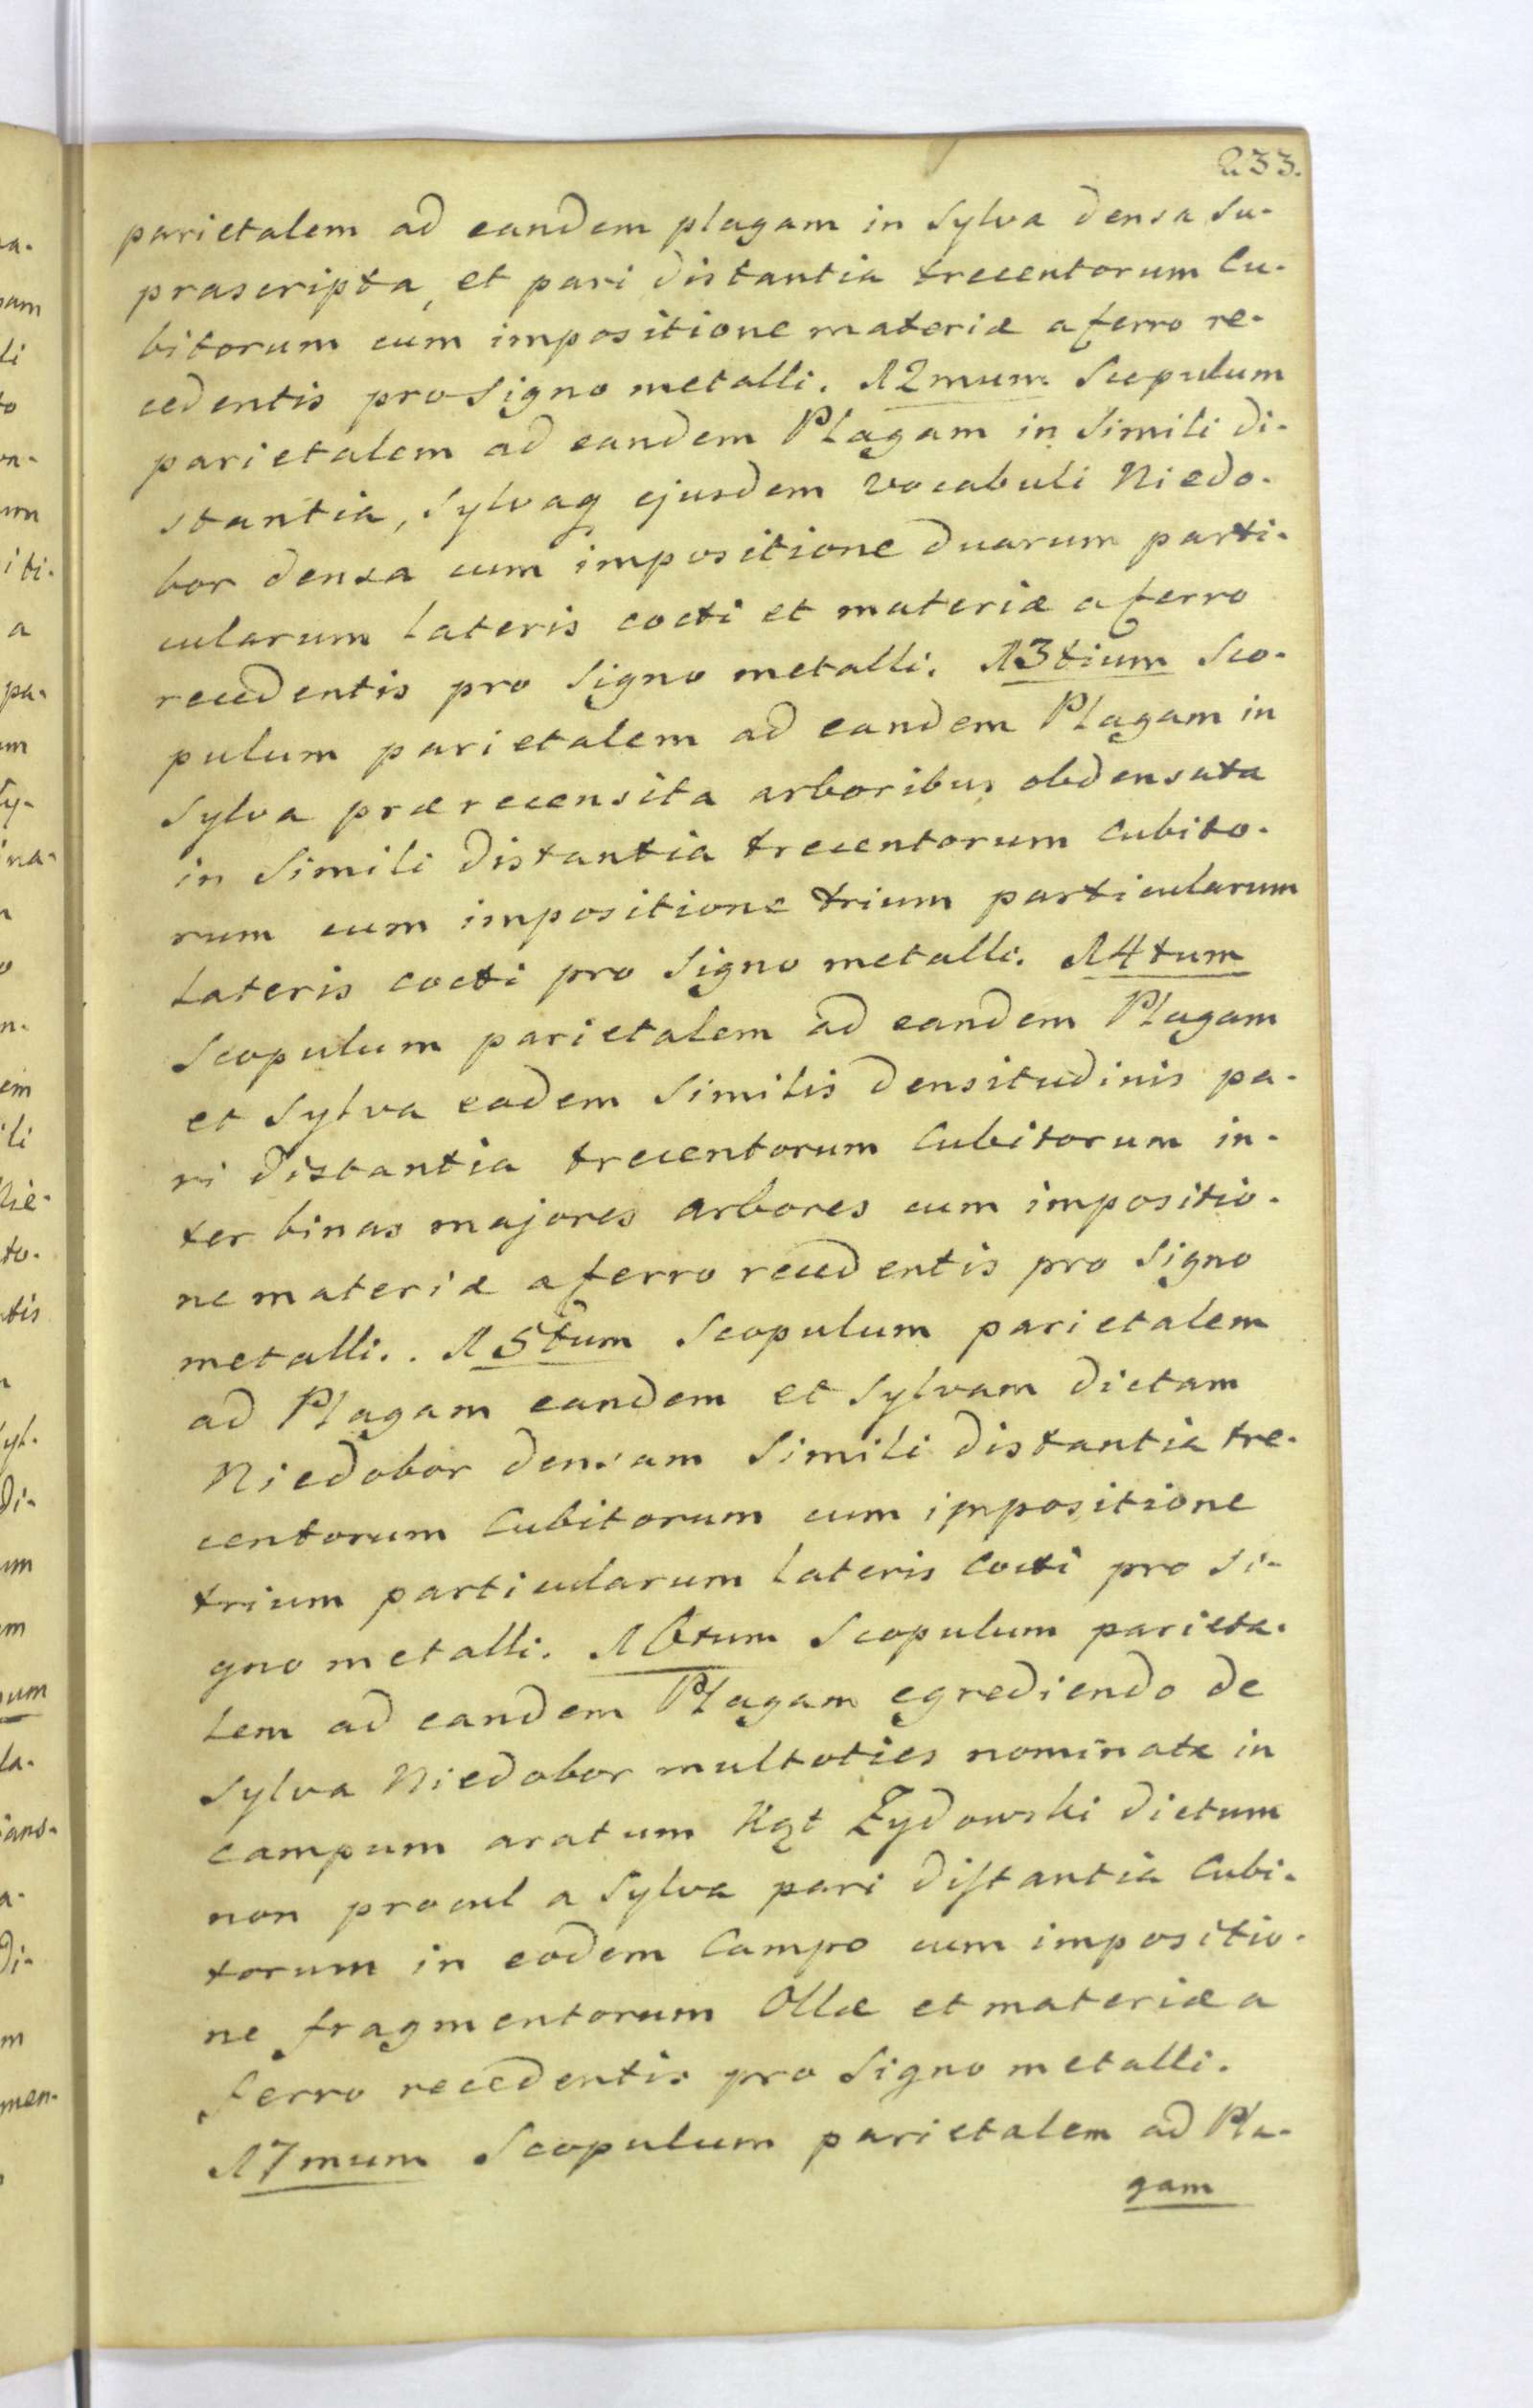 233.
parietalem ad eandem plagam in Sylva densa su-
prascripta, et pari distantia trecentorum Cu-
bitorum cum impositione materiæ a ferro re-
cedentis pro Signo metalli. 12mum Scopulum
parietalem ad eandem Plagam in Simili di-
stantia, Sylvaq ejusdem vocabuli Niedo-
bor densa cum impositione duarum parti-
cularum Lateris cocti et materiæ a ferro
recedentis pro Signo metalli. 13tium Sco-
pulum parietalem ad eandem Plagam in
Sylva prærecensita arboribus obdensata
in Simili distantia trecentorum Cubito-
rum cum impositione trium particularum
Lateris cocti pro Signo metalli. 14tum
Scopulum parietalem ad eandem Plagam
et Sylva eadem Similis densitudinis pa-
ri distantia trecentorum Cubitorum in-
ter binas majores arbores cum impositio-
ne materiæ a ferro recedentis pro Signo
metalli.. 15tum Scopulum parietalem
ad Plagam eandem et Sylvam dictam
Niedobor densam Simili distantia tre-
centorum Cubitorum cum impositione
trium particularum Lateris Cocti pro Si-
gno metalli. 16tum Scopulum parieta-
lem ad eandem Plagam egrediendo de
Sylva Niedobor multoties nominata in
campum aratum Kąt Żydowski dictum
non procul a Sylva pari distantia Cubi-
torum in eodem Campo cum impositio-
ne fragmentorum Ollæ et materiæ a
ferro recedentis pro Signo metalli.
17mum Scopulum parietalem ad Pla-
gam